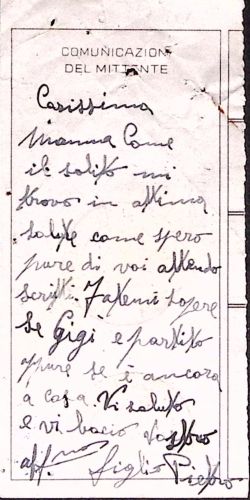 COMUNICAZIONI
DEL MITTENTE
Carissima
Mamma Come
il solito mi
trovo in ottima
salute come spero
pure di voi attendo
scritti. Fatemi sapere
se Gigi e partito
oppure se è ancora
a casa. Vi saluto
e vi bacio vostro
aff.mo figlio Pietro